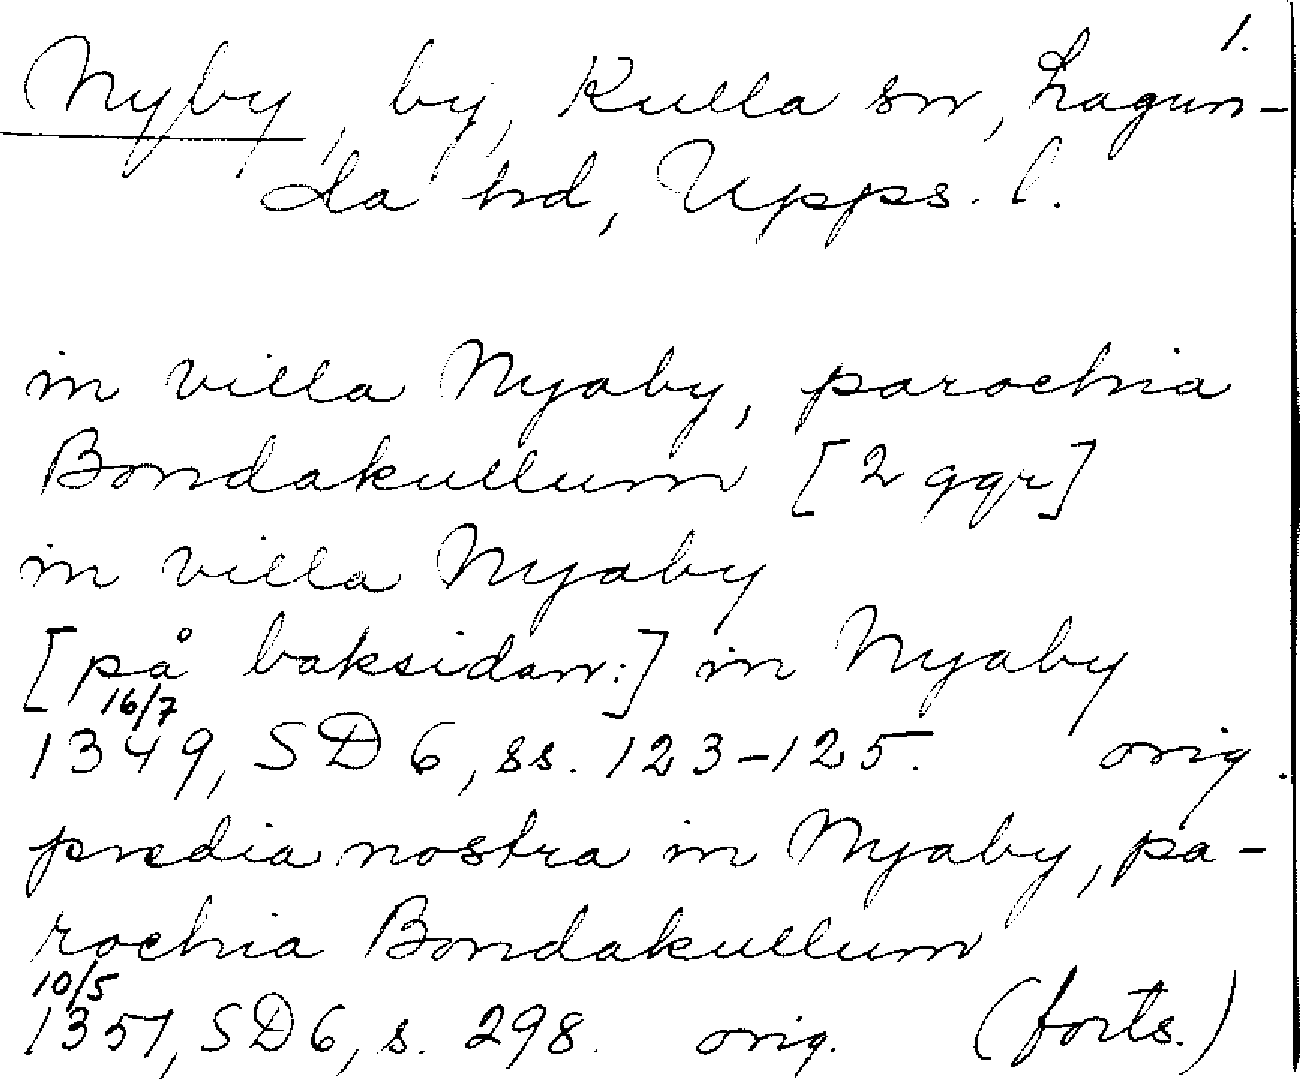 1.
Nyby, by, Kulla sn, Lagun-
da hd, Upps. l.
in villa Nyaby, parochia
Bondakullum [2 ggr]
in villa Nyaby
[på baksidan:] in Nyaby
16/7
1349, SD 6, ss. 123-125. orig.
predia nostra in Nyaby, pa-
rochia Bondakullum
10/5
1351, SD 6, s. 298. orig. (forts.)